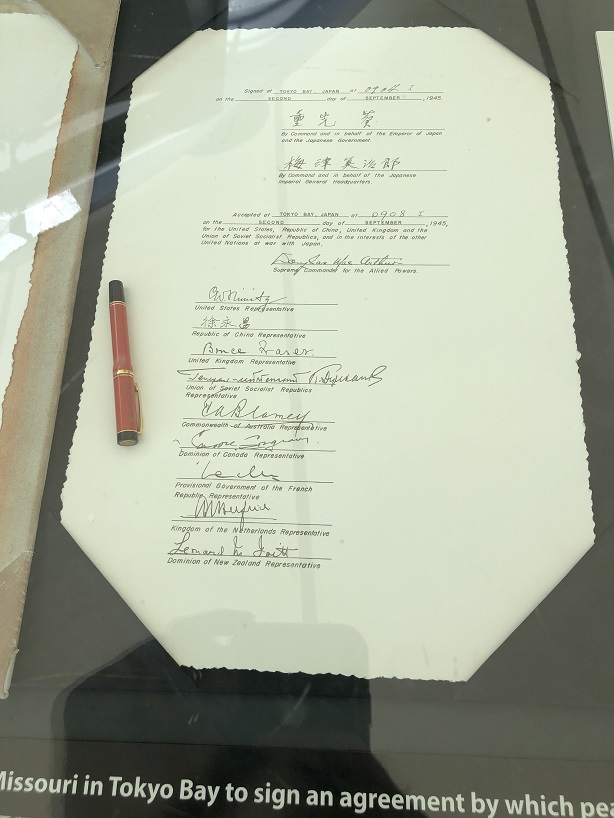 Signed at TOKYO BAY, JAPAN at 0904 I
on the SECOND day of SEPTEMBER, 1945.
重光葵
By Command and in behalf of the Emperor of Japan
and the Japanese Government.
梅津美治郎
By Command and in behalf of the Japanese
Imperial General Headquarters.
Accepted at TOKYO BAY, JAPAN at 0908 I
on the SECOND day of SEPTEMBER, 1945,
for the United States, Republic of China, United Kingdom and the
Union of Soviet Socialist Republics, and in the interests of the other
United Nations at war with Japan.
Douglas MacArthur
Supreme Commander for the Allied Powers.
C.W. Nimitz
United States Representative
徐永昌
Republic of China Representative
Bruce Fraser
United Kingdom Representative
Union of Soviet Socialist Republics
Representative
T.A. Blamey
Commonwealth of Australia Representative
Dominion of Canada Representative
Provisional Government of the French
Republic Representative
Kingdom of the Netherlands Representative
Leonard M. Isitt
Dominion of New Zealand Representative
Missouri in Tokyo Bay to sign an agreement by which pea